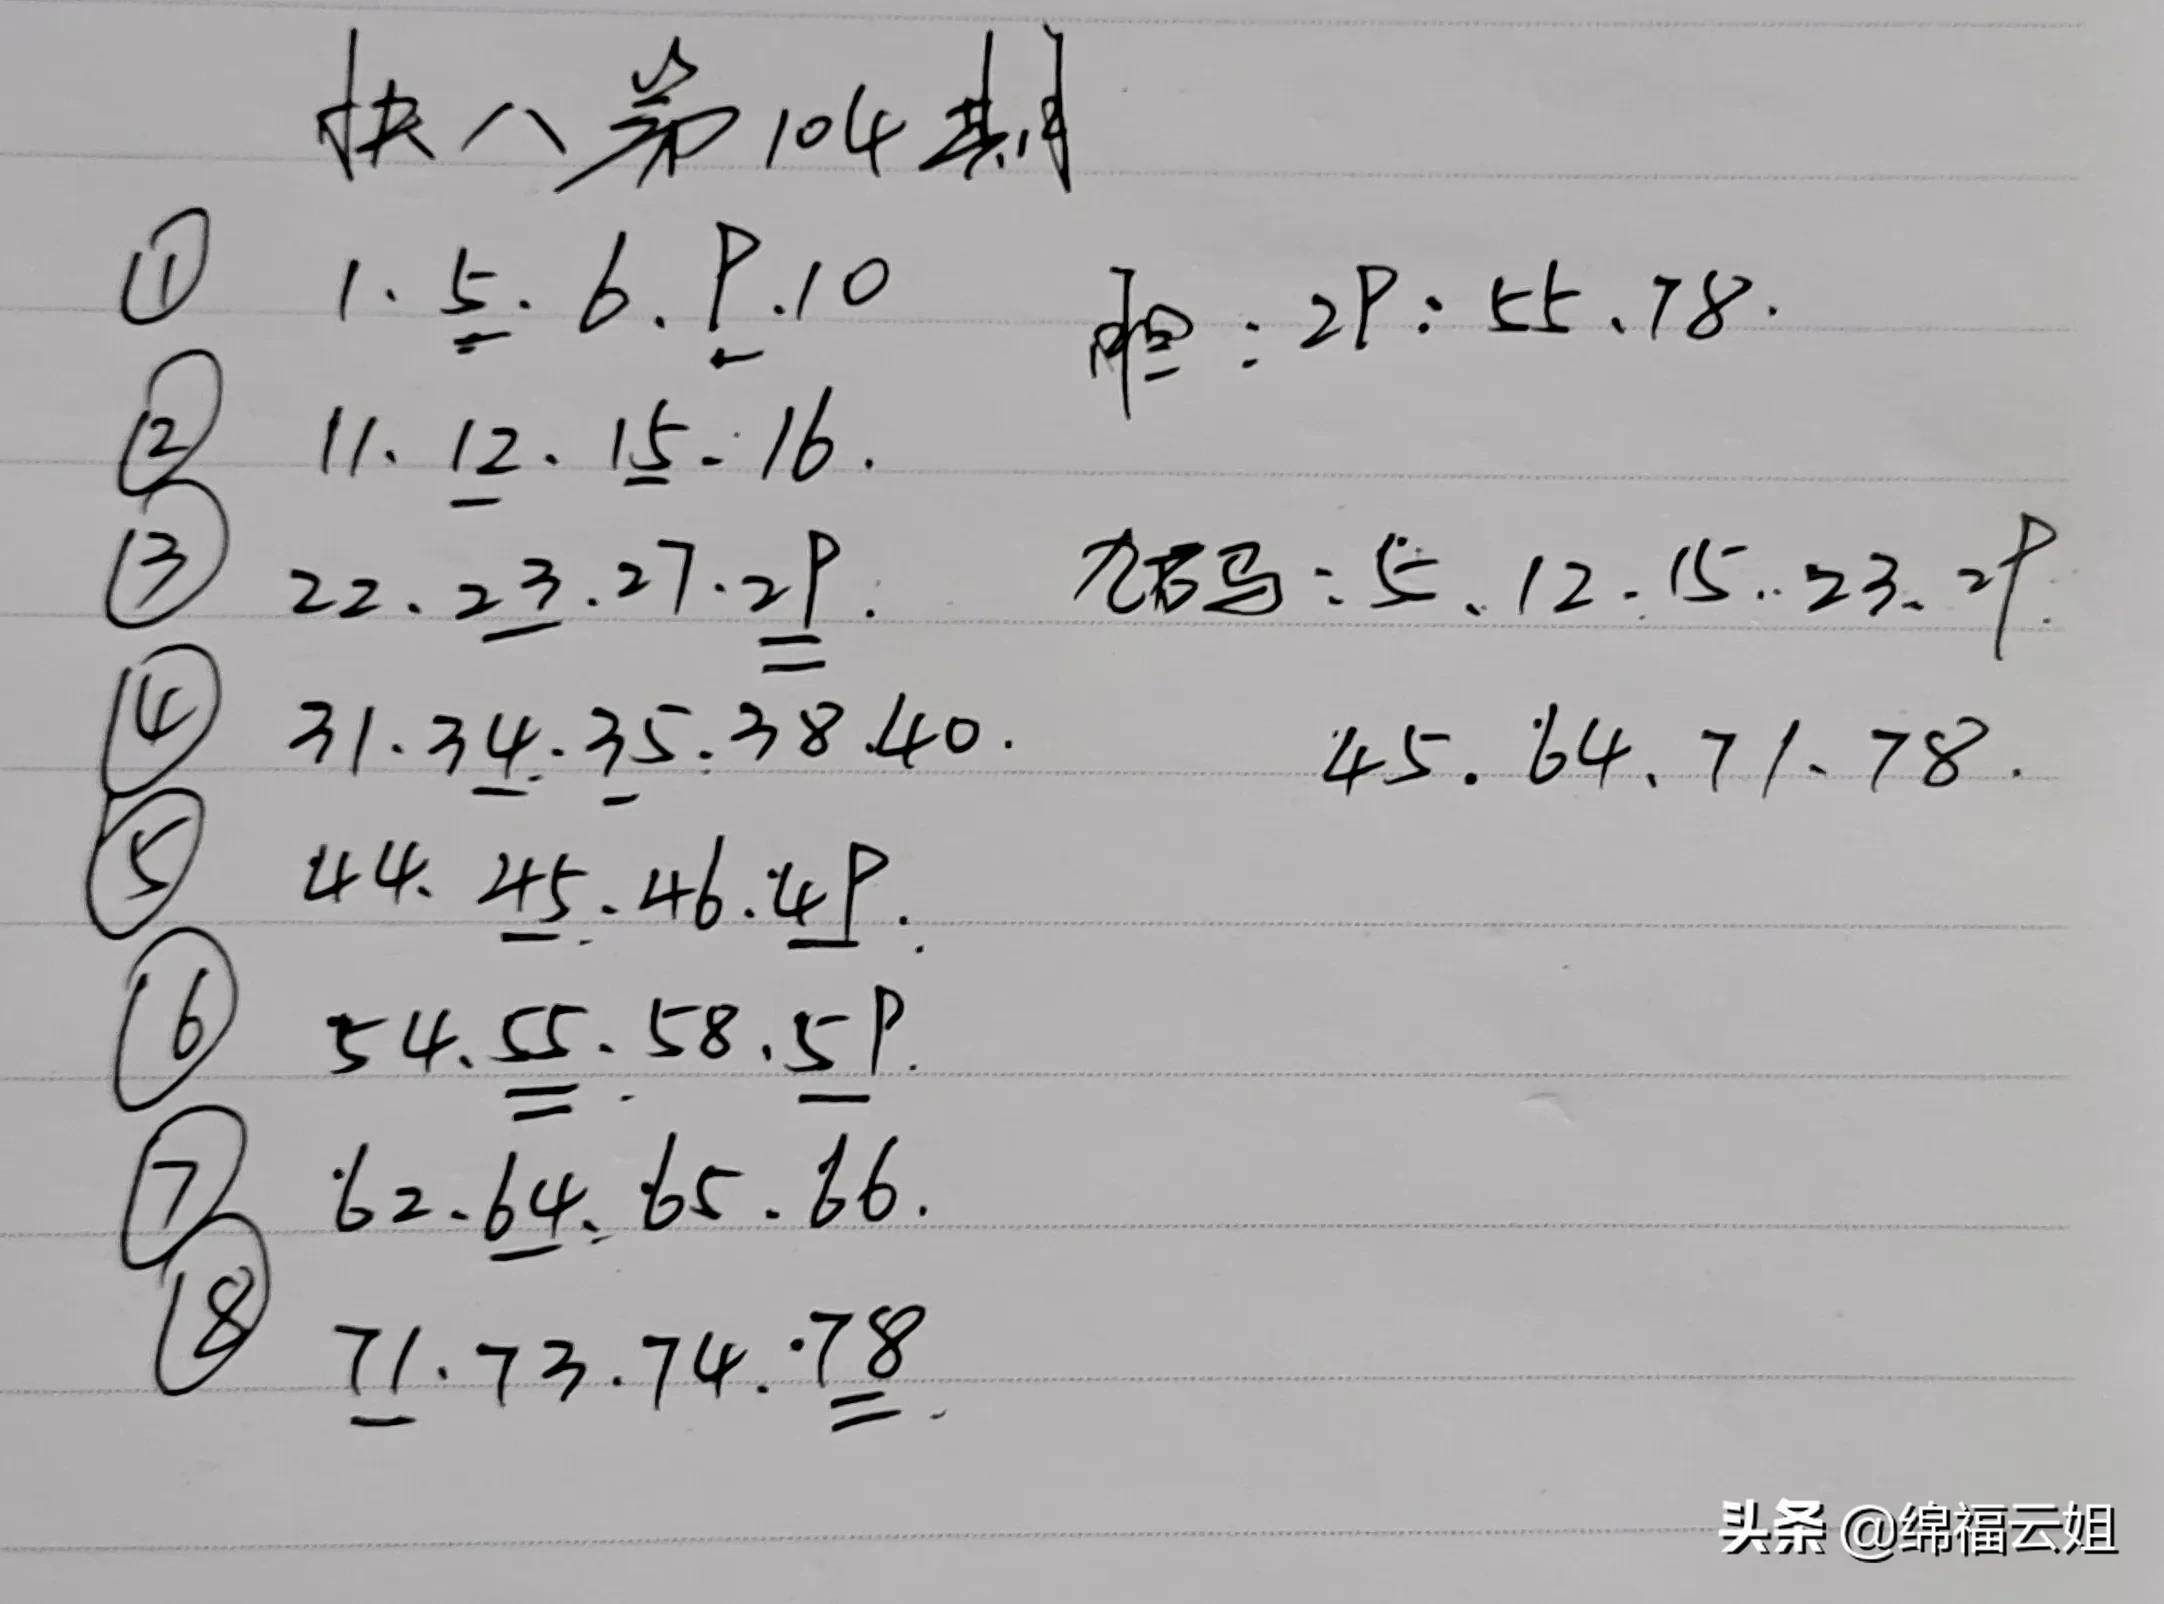 快八第104期
① 1.5.6.9.10
胆:29:55、78.
② 11、12、15.16.
③ 22.23.27.29.
码:5、12.15.23、29.
④ 31.34.35.38.40.
45.64、71、78.
⑤ 44.45.46.49.
⑥ 54.55.58.59.
⑦ 62.64.65.66.
⑧ 71.73.74.78.
头条 @绵福云姐